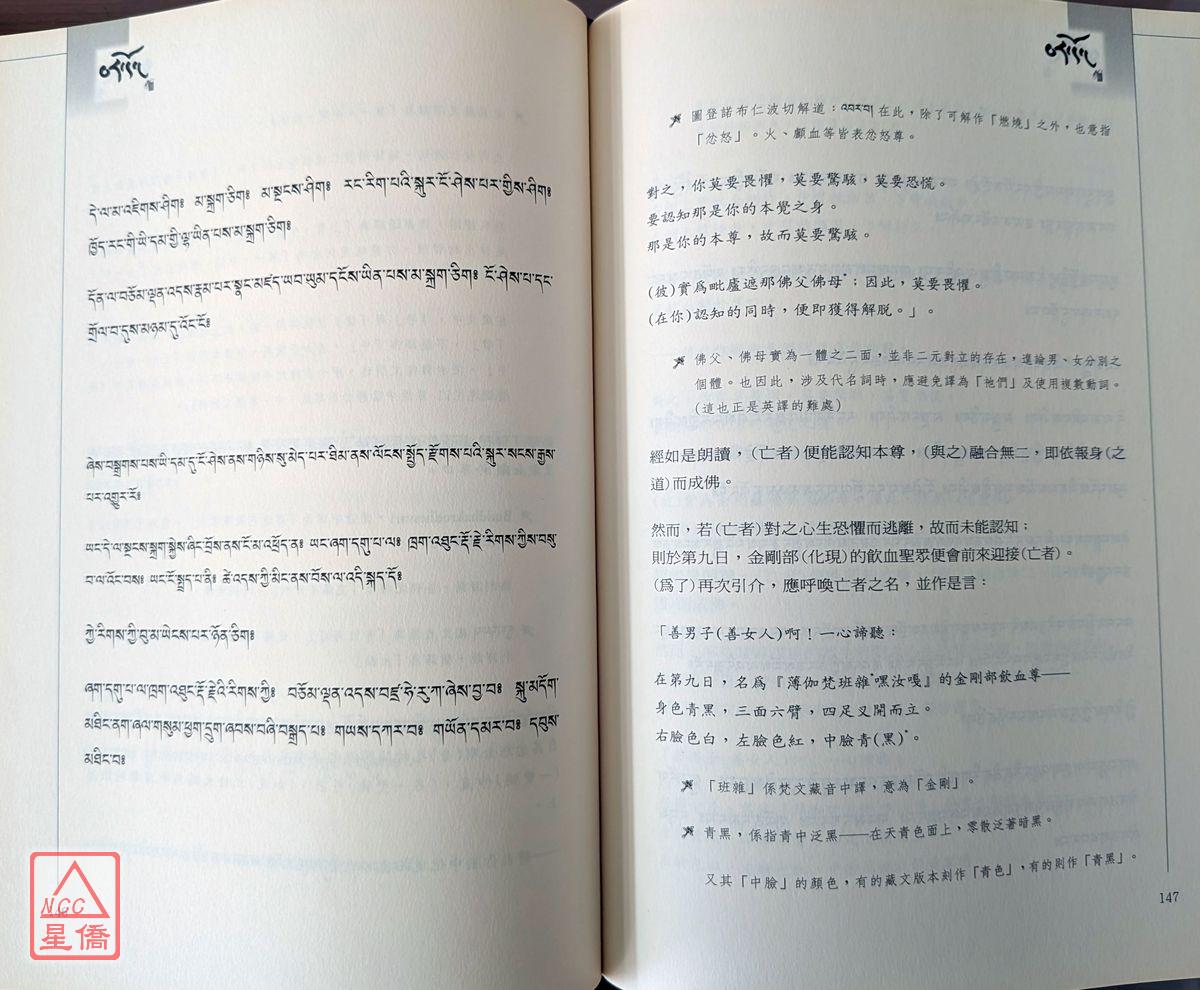 དེ་ལ་མ་འཇིགས་ཤིག༔ མ་སྐྲག་ཅིག༔ མ་སྔངས་ཤིག༔ རང་རིག་པའི་སྐུར་ངོ་ཤེས་པར་གྱིས་ཤིག༔
ཁྱོད་རང་གི་ཡི་དམ་གྱི་ལྷ་ཡིན་པས་མ་སྐྲག་ཅིག༔
དོན་ལ་བཅོམ་ལྡན་འདས་རྣམ་པར་སྣང་མཛད་ཡབ་ཡུམ་དངོས་ཡིན་པས་མ་སྐྲག་ཅིག༔ ངོ་ཤེས་པ་དང་
གྲོལ་བ་དུས་མཉམ་དུ་འོང་ངོ༔
ཞེས་བསྒྲགས་པས་ཡི་དམ་དུ་ངོ་ཤེས་ནས་གཉིས་སུ་མེད་པར་ཐིམ་ནས་ལོངས་སྤྱོད་རྫོགས་པའི་སྐུར་སངས་རྒྱས་
པར་འགྱུར་རོ༔
ཡང་དེ་ལ་སྔངས་སྐྲག་སྐྱེས་ཤིང་བྲོས་ནས་ངོ་མ་འཕྲོད་ན༔ ཡང་ཞག་དགུ་པ་ལ༔ ཁྲག་འཐུང་རྡོ་རྗེ་རིགས་ཀྱིས་བསུ་
བ་ལ་འོང་བས༔ ཡང་ངོ་སྤྲད་པ་ནི༔ ཚེ་འདས་ཀྱི་མིང་ནས་བོས་ལ་འདི་སྐད་དོ༔
ཀྱེ་རིགས་ཀྱི་བུ་མ་ཡེངས་པར་ཉོན་ཅིག༔
ཞག་དགུ་པ་ལ་ཁྲག་འཐུང་རྡོ་རྗེའི་རིགས་ཀྱི༔ བཅོམ་ལྡན་འདས་བཛྲ་ཧེ་རུ་ཀ་ཞེས་བྱ་བ༔ སྐུ་མདོག་
མཐིང་ནག་ཞལ་གསུམ་ཕྱག་དྲུག་ཞབས་བཞི་བསྒྲད་པ༔ གཡས་དཀར་བ༔ གཡོན་དམར་བ༔ དབུས་
མཐིང་བ༔
NCC
星僑
圖登諾布仁波切解道：འབར་བ། 在此，除了可解作「燃燒」之外，也意指
「忿怒」。火、顱血等皆表忿怒尊。
對之，你莫要畏懼，莫要驚駭，莫要恐慌。
要認知那是你的本覺之身。
那是你的本尊，故而莫要驚駭。
(彼)實爲毗盧遮那佛父佛母*；因此，莫要畏懼。
(在你)認知的同時，便即獲得解脱。」。
佛父、佛母實為一體之二面，並非二元對立的存在，遑論男、女分別之
個體。也因此，涉及代名詞時，應避免譯為「祂們」及使用複數動詞。
(這也正是英譯的難處)
經如是朗讀，(亡者)便能認知本尊，(與之)融合無二，即依報身(之
道)而成佛。
然而，若(亡者)對之心生恐懼而逃離，故而未能認知；
則於第九日，金剛部(化現)的飲血聖眾便會前來迎接(亡者)。
(爲了)再次引介，應呼喚亡者之名，並作是言：
「善男子(善女人)啊！一心諦聽：
在第九日，名爲『薄伽梵班雜*嘿汝嘎』的金剛部飲血尊——
身色青黑，三面六臂，四足叉開而立。
右臉色白，左臉色紅，中臉青(黑)*。
「班雜」係梵文藏音中譯，意為「金剛」。
青黑，係指青中泛黑——在天青色面上，零散泛著暗黑。
又其「中臉」的顏色，有的藏文版本刻作「青色」，有的則作「青黑」。
147